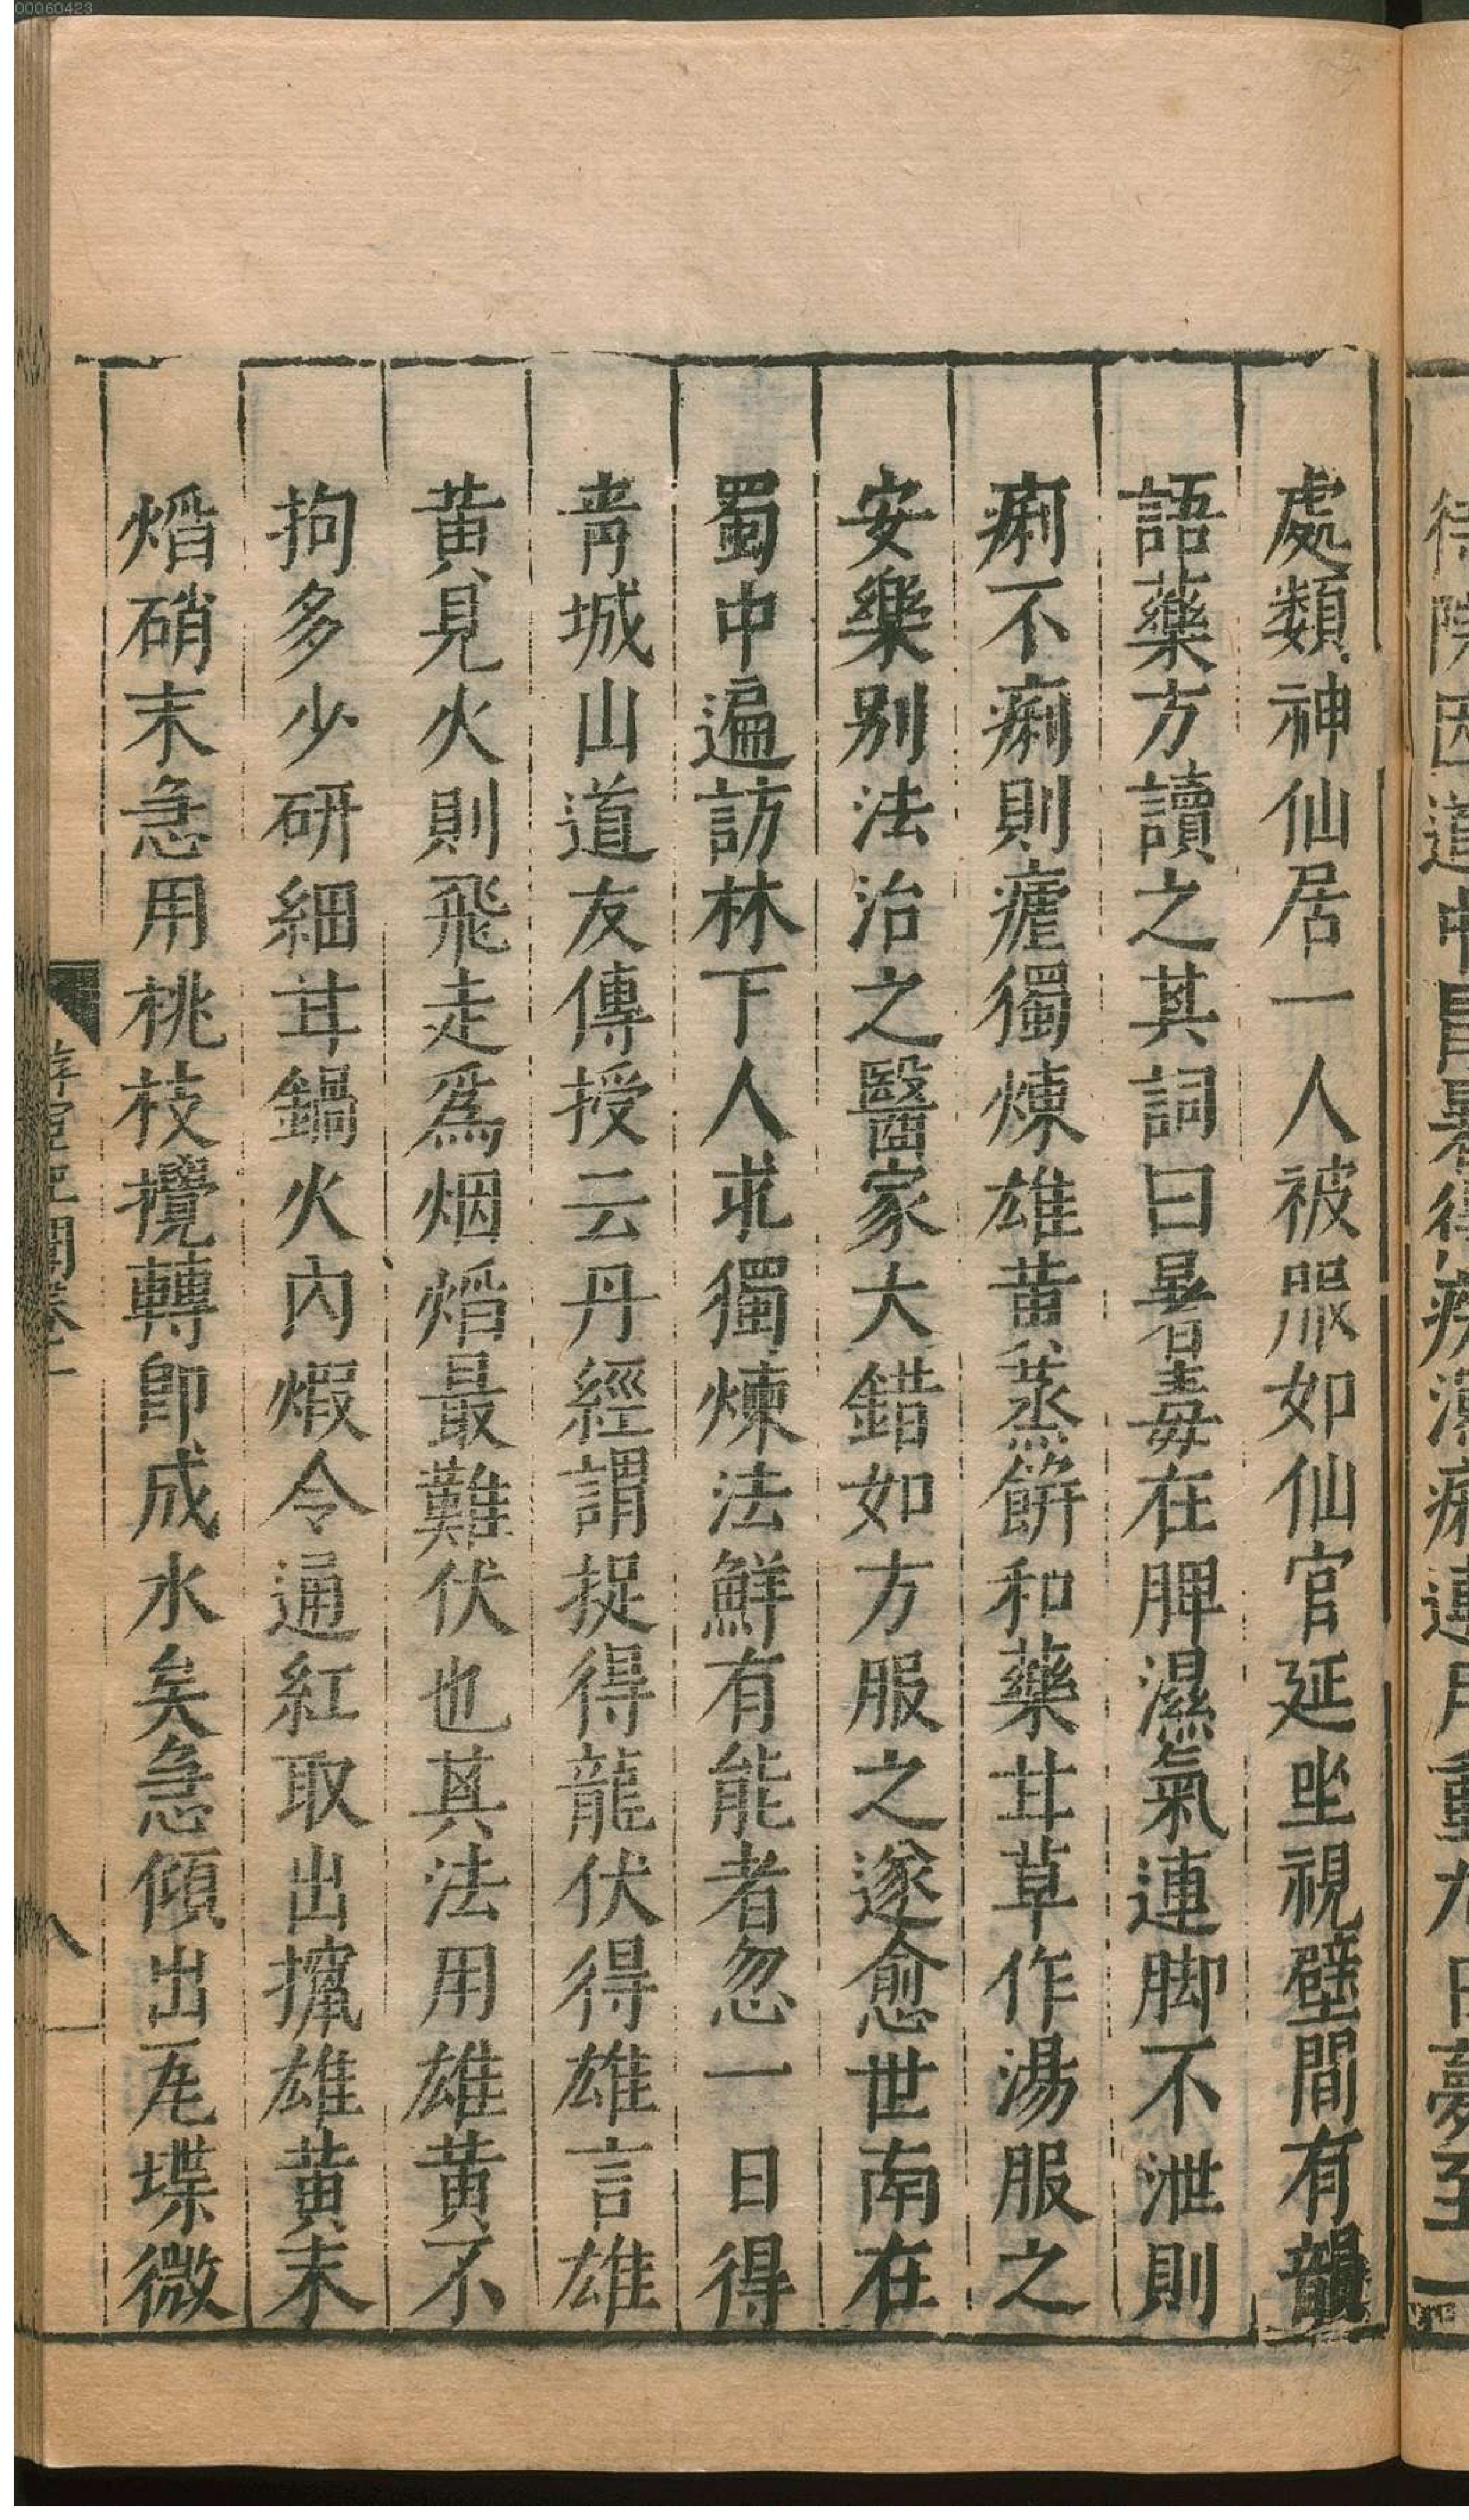 處類神仙居一人被服如仙官延坐視壁間有韻
語藥方讀之其詞曰暑毒在脾濕氣連脚不泄則
痢不痢則瘧獨煉雄黃蒸餅和藥甘草作湯服之
安樂別法治之醫家大錯如方服之遂愈世南在
蜀中遍訪林下人求獨煉法鮮有能者忽一日得
青城山道友傳授云丹經謂捉得龍伏得雄言雄
黃見火則飛走爲烟熖最難伏也其法用雄黃不
拘多少研細甘鍋火內煆令通紅取出攛雄黃末
熖硝末急用桃枝攪轉即成水矣急傾出瓦堞微
八
00060423